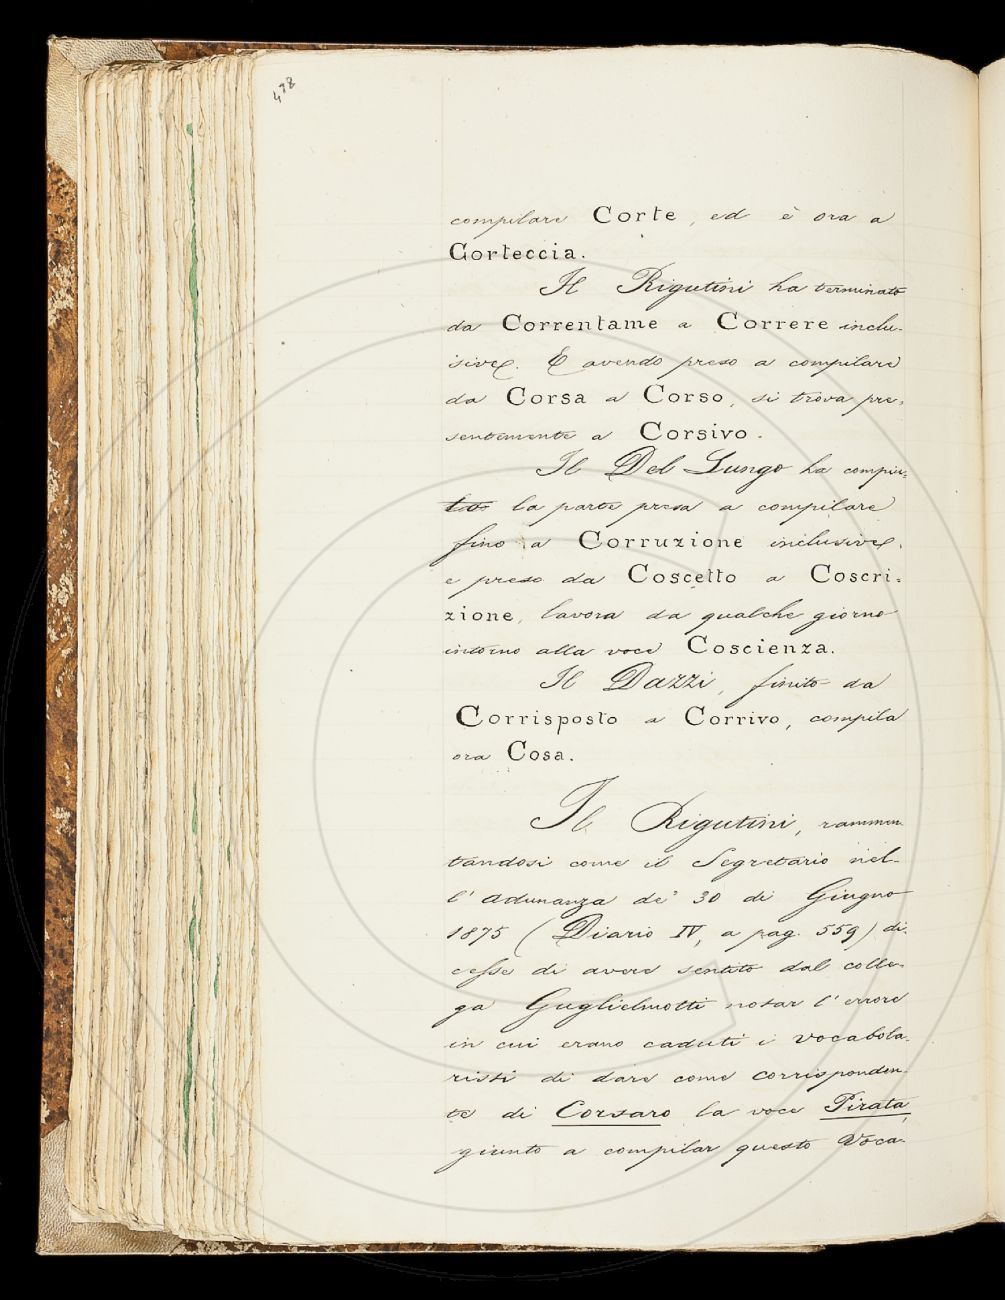 478
compilare Corte, ed è ora a
Corteccia.
Il Rigutini ha terminato
da Correntame a Correre inclu-
sive. E avendo preso a compilare
da Corsa a Corso, si trova pre-
sentemente a Corsivo.
Il Del Lungo ha compiu-
to la parte presa a compilare
fino a Corruzione inclusive,
e preso da Coscetto a Coscri-
zione, lavora da qualche giorno
intorno alla voce Coscienza.
Il Dazzi, finito da
Corrisposto a Corrivo, compila
ora Cosa.
Il Rigutini, rammen-
tandosi come il Segretario nel-
l'adunanza de' 30 di Giugno
1875 (Diario IV, a pag. 559) di-
cesse di avere sentito dal colle-
ga Guglielmotti notar l'errore
in cui erano caduti i vocabola-
risti di dare come corrisponden-
te di Corsaro la voce Pirata,
giunto a compilar questo Voca-